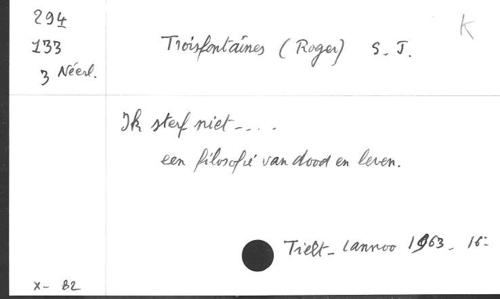 294
133
3 Néerl.
Troisfontaines (Roger) S. J.
K
Ik sterf niet....
een filosofie van dood en leven.
Tielt - Lannoo 1963 - 16=
X - 82